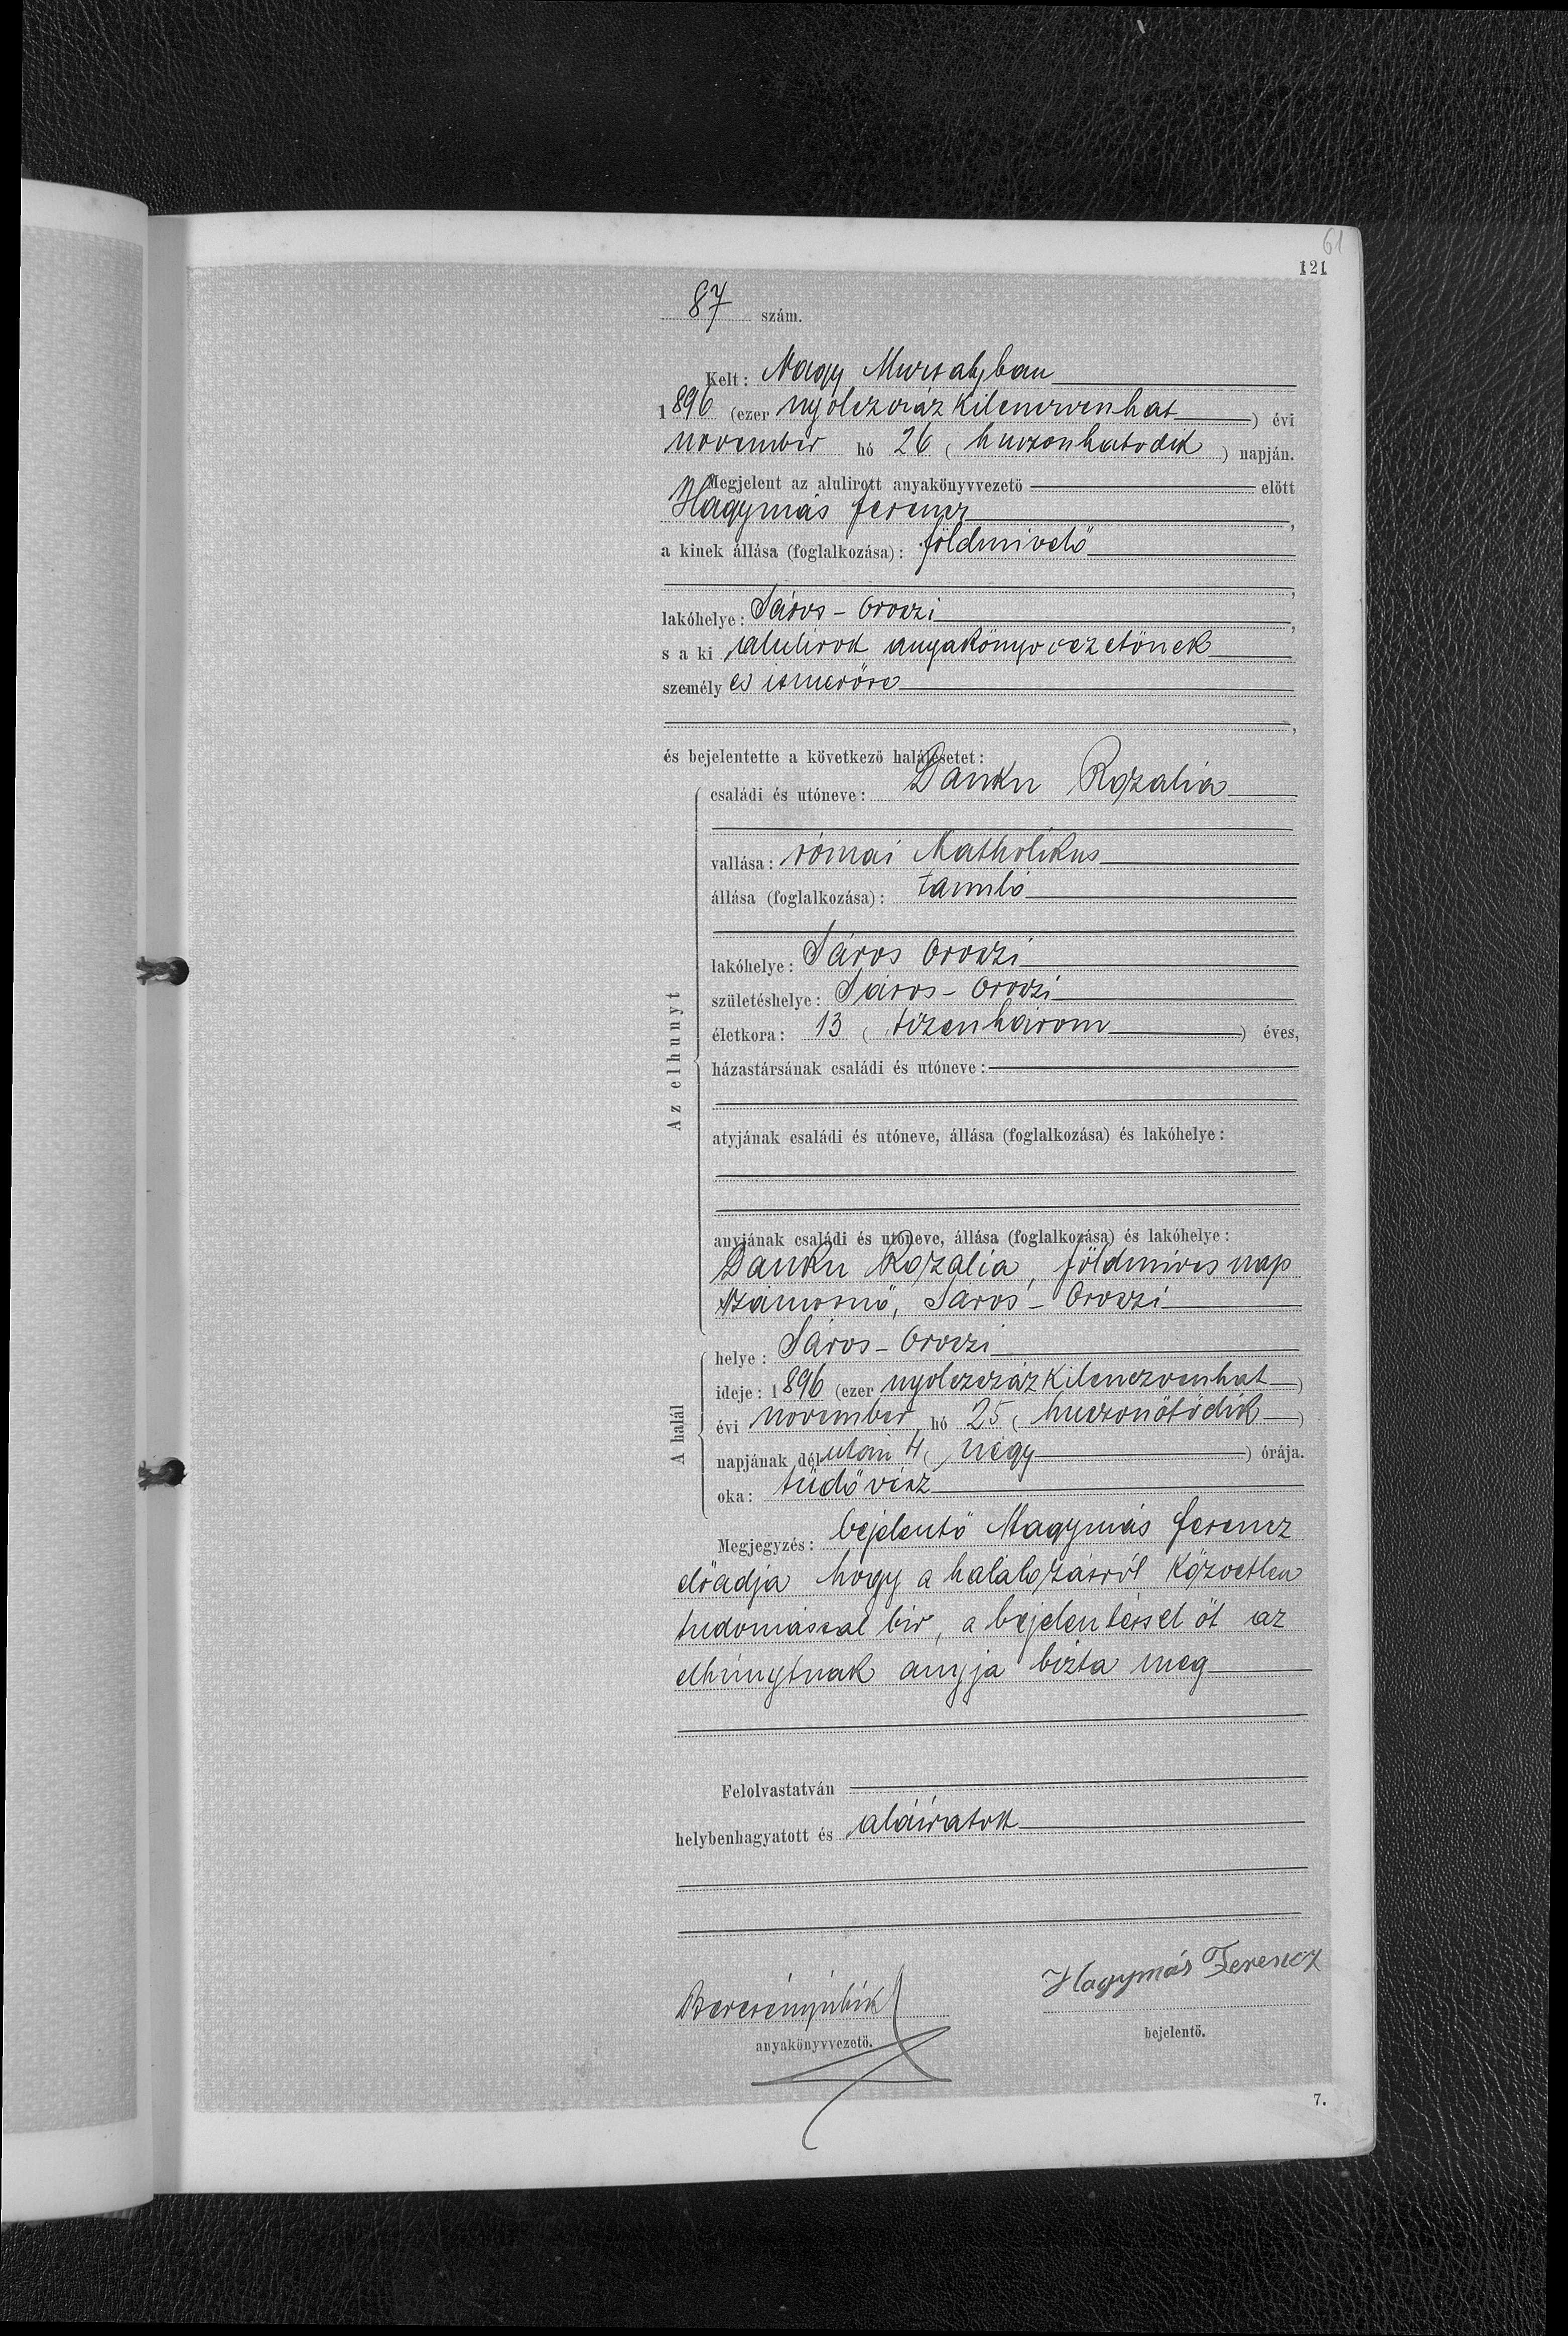 61
121
87 szám.
Kelt: Nagy Muzsalyban
1896 (ezer nyolczszáz kilenczvenhat) évi
november hó 26 (huszonhatodik) napján.
Megjelent az alulirott anyakönyvvezető előtt
Hagymás Ferencz,
a kinek állása (foglalkozása): földmivelő
,
lakóhelye: Sáros-Oroszi,
s a ki alulirott anyakönyvvezetőnek
személyes ismerőse
,
és bejelentette a következő halálesetet:
Az elhunyt
családi és utóneve: Danku Rozalia
vallása: római Katholikus
állása (foglalkozása): tanuló
lakóhelye: Sáros Oroszi
születéshelye: Sáros-Oroszi
életkora: 13 (tizenhárom) éves,
házastársának családi és utóneve:
atyjának családi és utóneve, állása (foglalkozása) és lakóhelye:
anyjának családi és utóneve, állása (foglalkozása) és lakóhelye:
Danku Rozália, földmives nap
számosnő, Sáros-Oroszi
A halál
helye: Sáros-Oroszi
ideje: 1896 (ezer nyolczszáz kilenczvenhat)
évi november hó 25 (huszonötödik)
napjának délután 4 (négy) órája.
oka: tüdővész
Megjegyzés: bejelentő Hagymás Ferencz
előadja hogy a halálozásról közvetlen
tudomással bir, a bejelentéssel őt az
elhúnytnak anyja bízta meg
Felolvastatván
helybenhagyatott és aláiratott
Hagymás Ferencz
anyakönyvvezető.
bejelentő.
7.